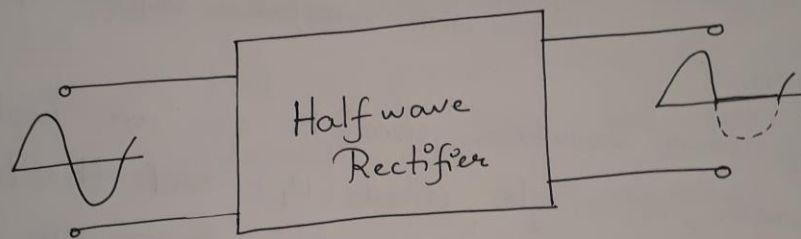 Half wave
Rectifier